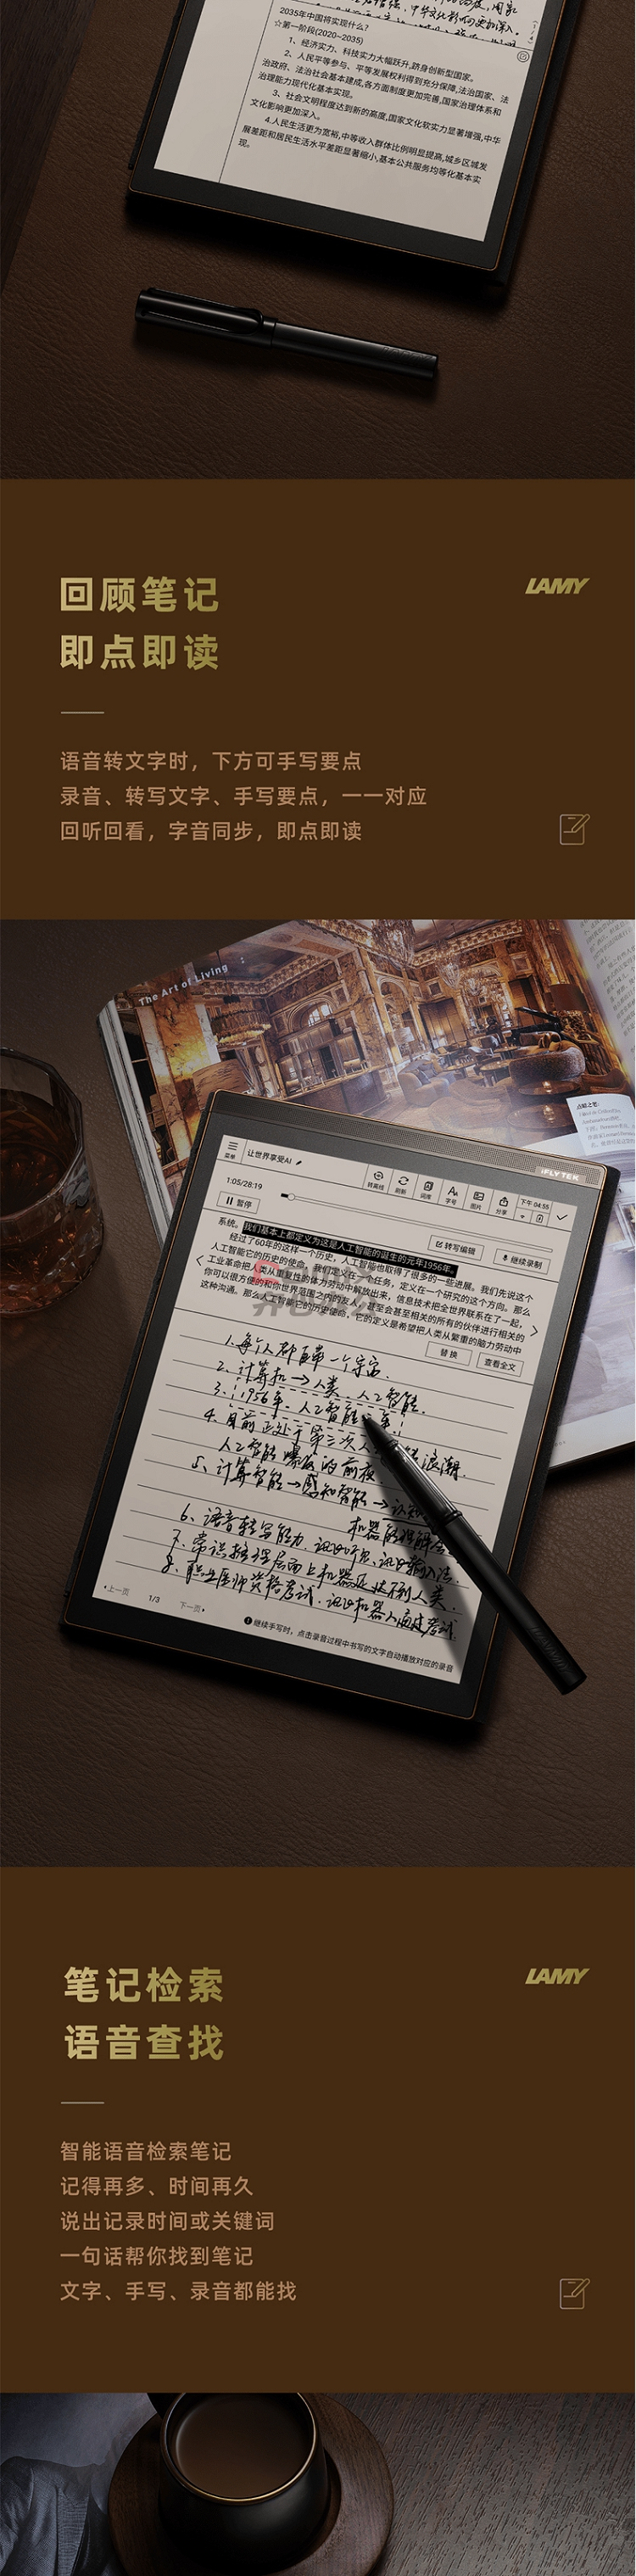 2035年中国将实现什么?
☆第一阶段(2020~2035)
1、经济实力、科技实力大幅跃升,跻身创新型国家。
2、人民平等参与、平等发展权利得到充分保障,法治国家、法
治政府、法治社会基本建成,各方面制度更加完善,国家治理体系和
治理能力现代化基本实现。
3、社会文明程度达到新的高度,国家文化软实力显著增强,中华
文化影响更加深入。
4.人民生活更为宽裕,中等收入群体比例明显提高,城乡区域发
展差距和居民生活水平差距显著缩小,基本公共服务均等化基本实
现。
回顾笔记
LAMY
即点即读
语音转文字时，下方可手写要点
录音、转写文字、手写要点，一一对应
回听回看，字音同步，即点即读
The Art of Living
iFLYTEK
菜单
让世界享受AI
转离线 刷新 词库 字号 图片 分享 下午 04:55
1:05/28:19
暂停
转写编辑
继续录制
系统。我们基本上都定义为这是人工智能的诞生的元年1956年。
经过了60年的这样一个历史，人工智能也取得了很多的一些进展。我们先说这个
人工智能它的历史的使命。
工业革命把人类从重复性的体力劳动中解放出来，信息技术把全世界联系在了一起，
这种沟通。那么人工智能它的历史使命，它的定义是希望把人类从繁重的脑力劳动中
替换
查看全文
1.每个人都自带一个宇宙.
2.计算机→人类、人工智能.
3.1956年.人工智能元年!
4.目前正处于第三次人
人工智能爆发的前夜
浪潮.
5、计算智能→感知智能→认知
机器能理解会
6、语音转写能力.讯飞听见、讯飞输入法.
7、常识推理层面上机器还达不到人类.
8、职业医师资格考试.讯飞机器人通过考试.
上一页 1/3 下一页
继续手写时，点击录音过程中书写的文字自动播放对应的录音
笔记检索
LAMY
语音查找
智能语音检索笔记
记得再多、时间再久
说出记录时间或关键词
一句话帮你找到笔记
文字、手写、录音都能找